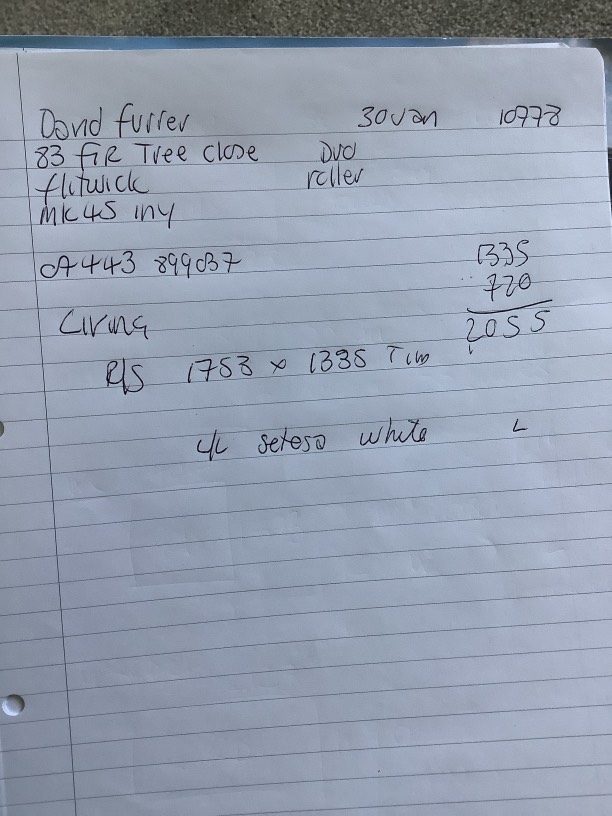 David Furrer 30 Jan 10778
83 Fir Tree Close Duo
Flitwick roller
MK45 1NY
07443 899037 1335
720
Living 2055
R/S 1753 x 1335
c/c seteso white L